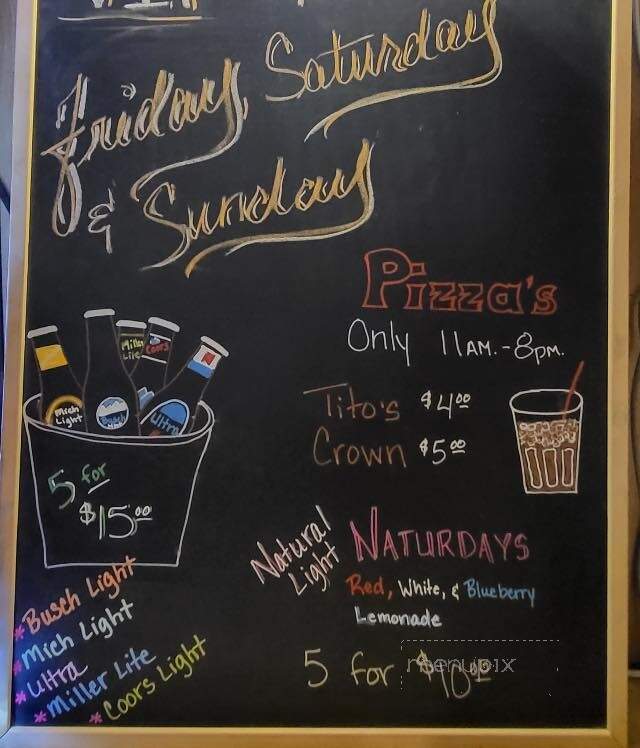 Friday, Saturday
& Sunday
Pizza's
Only 11AM.-8PM.
Tito's $4.00
Crown $5.00
Mich Light
Busch
Miller Lite
Coors
Ultra
5 for
$15.00
* Busch Light
* Mich Light
* Ultra
* Miller Lite
* Coors Light
Natural Light
NATURDAYS
Red, White, & Blueberry
Lemonade
5 for $10.00
menupix